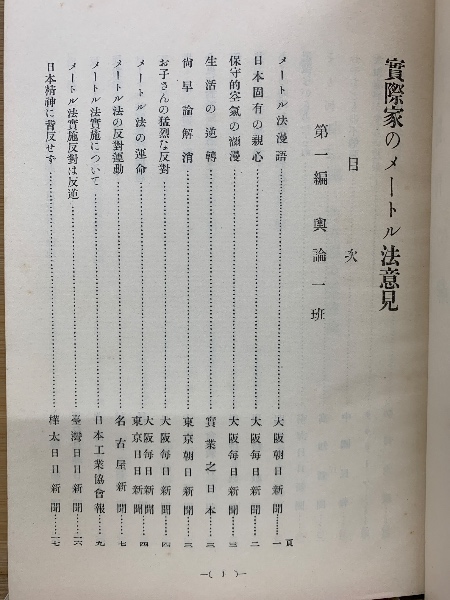 實際家のメートル法意見
目次
第一編 輿論一班
頁
メートル法漫語……大阪朝日新聞……一
日本固有の親心……大阪每日新聞……二
保守的空氣の瀰漫……大阪每日新聞……三
生活の逆轉……實業之日本……三
尙早論解消……東京朝日新聞……三
お子さんの猛烈な反對……大阪每日新聞……四
メートル法の運命……大阪每日新聞 東京日日新聞……四
メートル法の反對運動……名古屋新聞……七
メートル法實施について……日本工業協會報……九
メートル法實施反對は反逆……臺灣日日新聞……一六
日本精神に背反せず……樺太日日新聞……一七
—( 1 )—